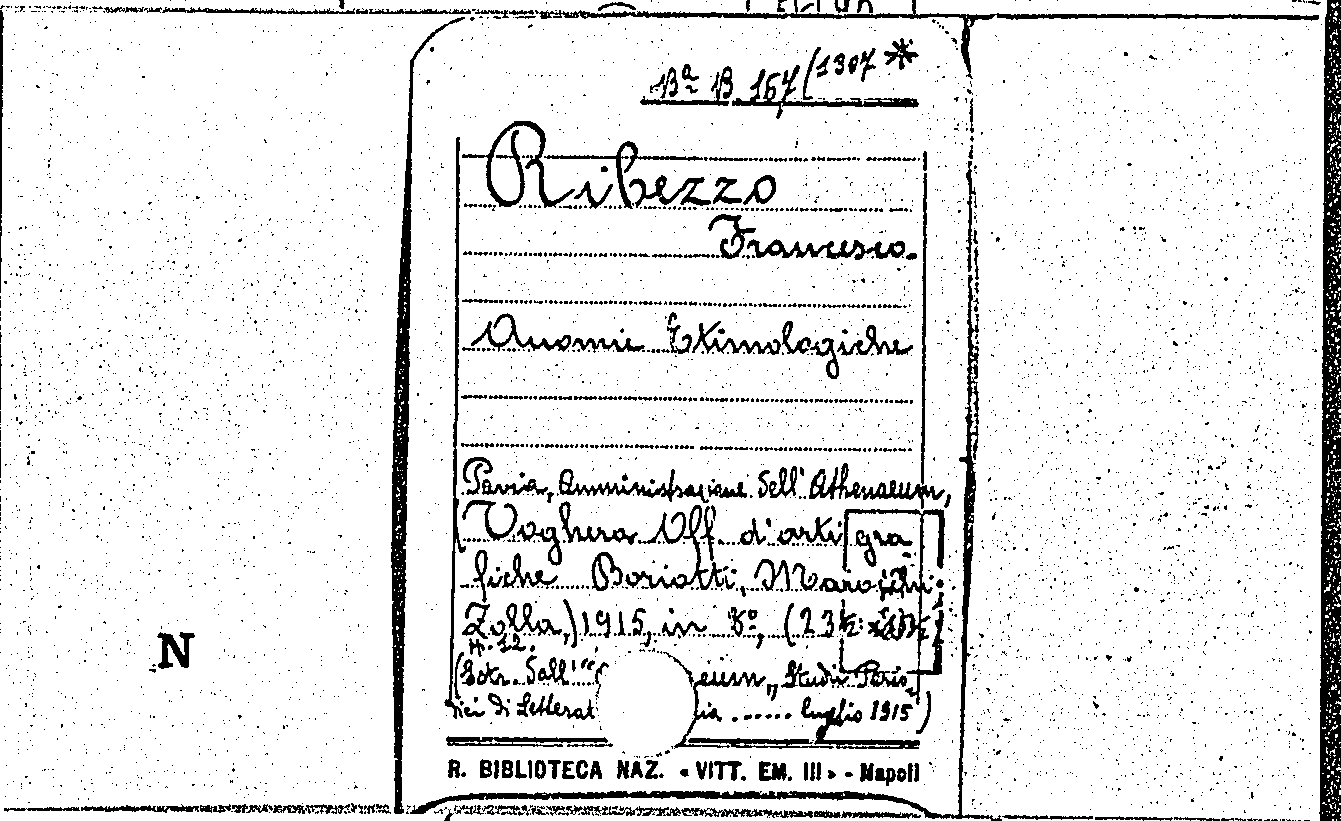 Bª B. 167 (1307 *
Ribezzo
Francesco.
Anomie Etimologiche
Pavia, Amministrazione dell' Athenaeum,
(Voghera Off. d'arti gra-
fiche Boriotti, Majocchi
Zolla,) 1915, in 8º, (23½
n. 12.
(Estr. dall' "eum,, Studi Perio-
dici di Letterat ia ...... luglio 1915)
R. BIBLIOTECA NAZ. « VITT. EM. III » - Napoli
N